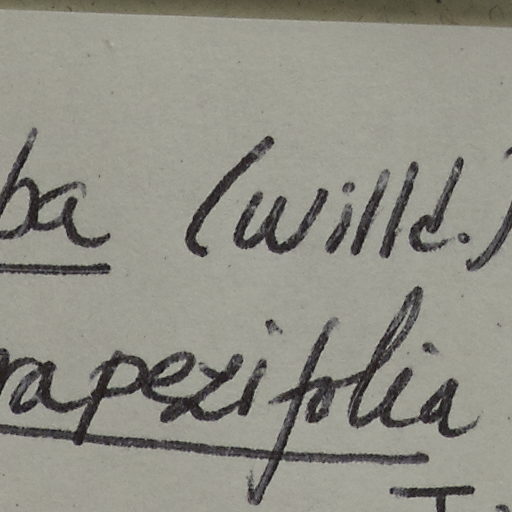 ba (Willd.)
rapezifolia